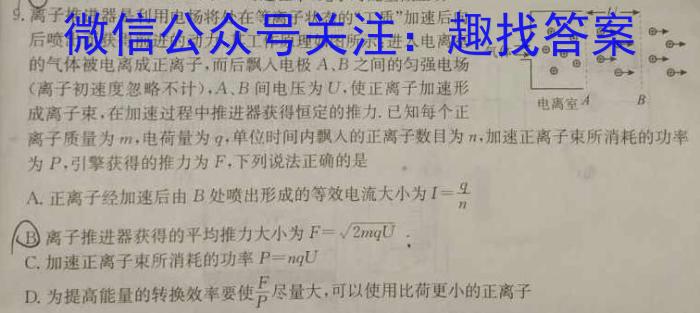 9.离子推进器是利用电场将处在等离子状态的“工质”加速后向
后喷
微信公众号关注：趣找答案
的气体被电离成正离子,而后飘入电极A、B之间的匀强电场
(离子初速度忽略不计),A、B间电压为U,使正离子加速形
成离子束,在加速过程中推进器获得恒定的推力.已知每个正
电离室 A B
离子质量为m,电荷量为q,单位时间内飘入的正离子数目为n,加速正离子束所消耗的功率
为P,引擎获得的推力为F,下列说法正确的是
A. 正离子经加速后由B处喷出形成的等效电流大小为I=q/n
B. 离子推进器获得的平均推力大小为F=√2mqU
C. 加速正离子束所消耗的功率P=nqU
D. 为提高能量的转换效率要使F/P尽量大,可以使用比荷更小的正离子